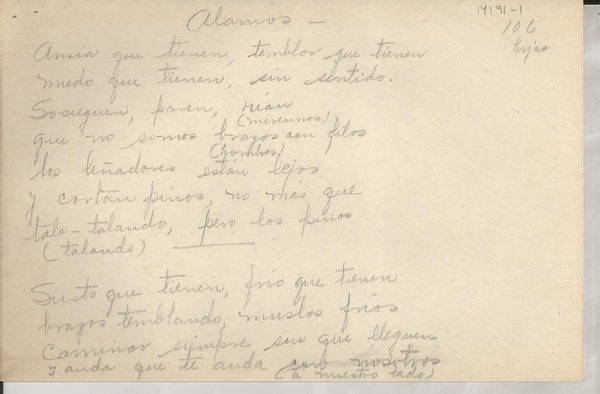 Alamos —
14191-1
106
hojas
Ansia que tienen, temblor que tienen
miedo que tienen, sin sentido.
Sosieguen, paren, rían
(mírennos)
que no somos brazos con filos
(hombres)
los leñadores están lejos
y cortan pinos, no más que
tala-talando, pero los pinos
(talando)
Susto que tienen, frío que tienen
brazos temblando, muslos fríos
Caminar siempre sin que lleguen
y anda que te anda con nosotros
(a nuestro lado)